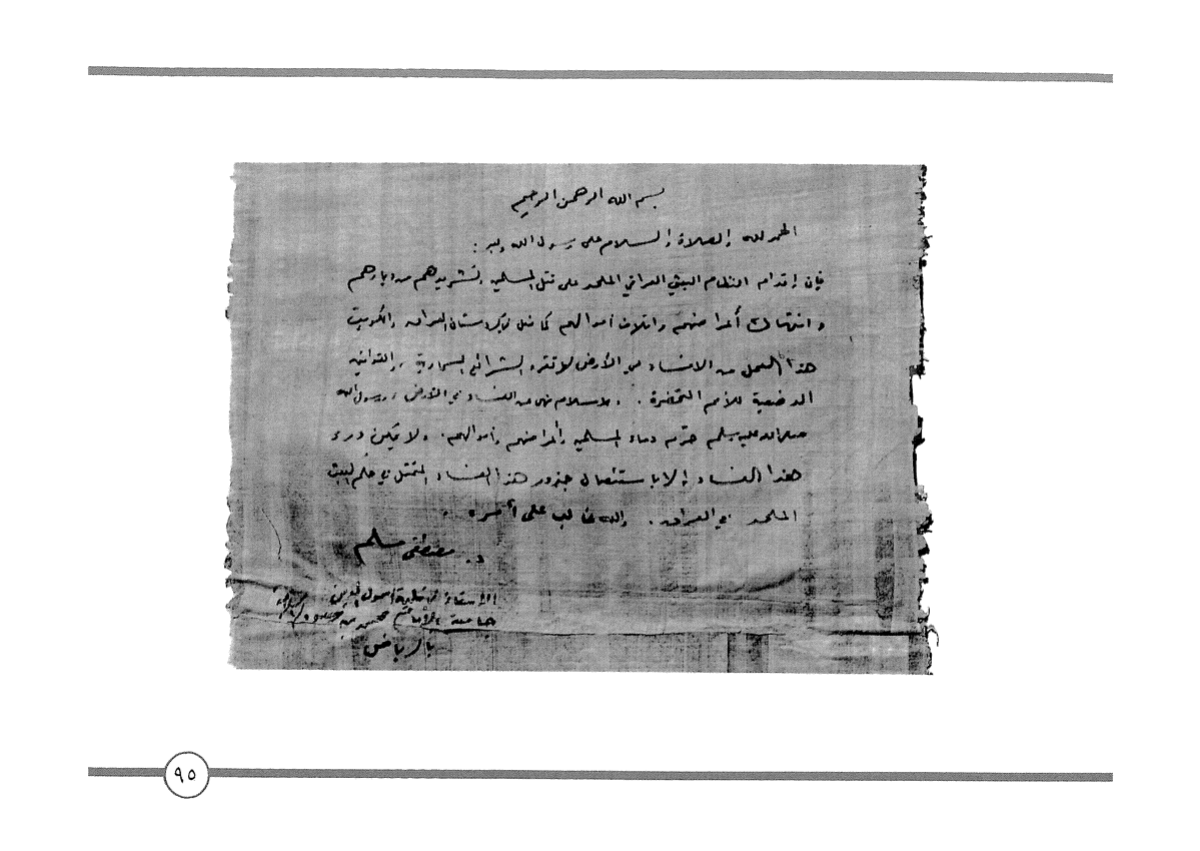 بسم الله الرحمن الرحيم
الحمد لله والصلاة والسلام على رسول الله وبعد :
فإن إقدام النظام البعثي العراقي الملحد على قتل المسلمين وتشريدهم من ديارهم
وانتهاك أعراضهم وإتلاف أموالهم كما فعل بكردستان العراق والكويت
هذا العمل من الافساد في الأرض لا تقره الشرائع السماوية ، والقوانين
الوضعية للأمم المتحضرة . والاسلام نهى عن الفساد في الأرض ، ورسول الله
صلى الله عليه وسلم حرّم دماء المسلمين وأعراضهم وأموالهم . ولا يمكن درء
هذا الفساد إلا باستئصال جذور هذا الفساد المتمثل في حكم البعث
الملحد في العراق . والله غالب على أمره .
د. مصطفى مسلم
الأستاذ بكلية أصول الدين
جامعة الإمام محمد بن سعود الإسلامية
بالرياض
٩٥